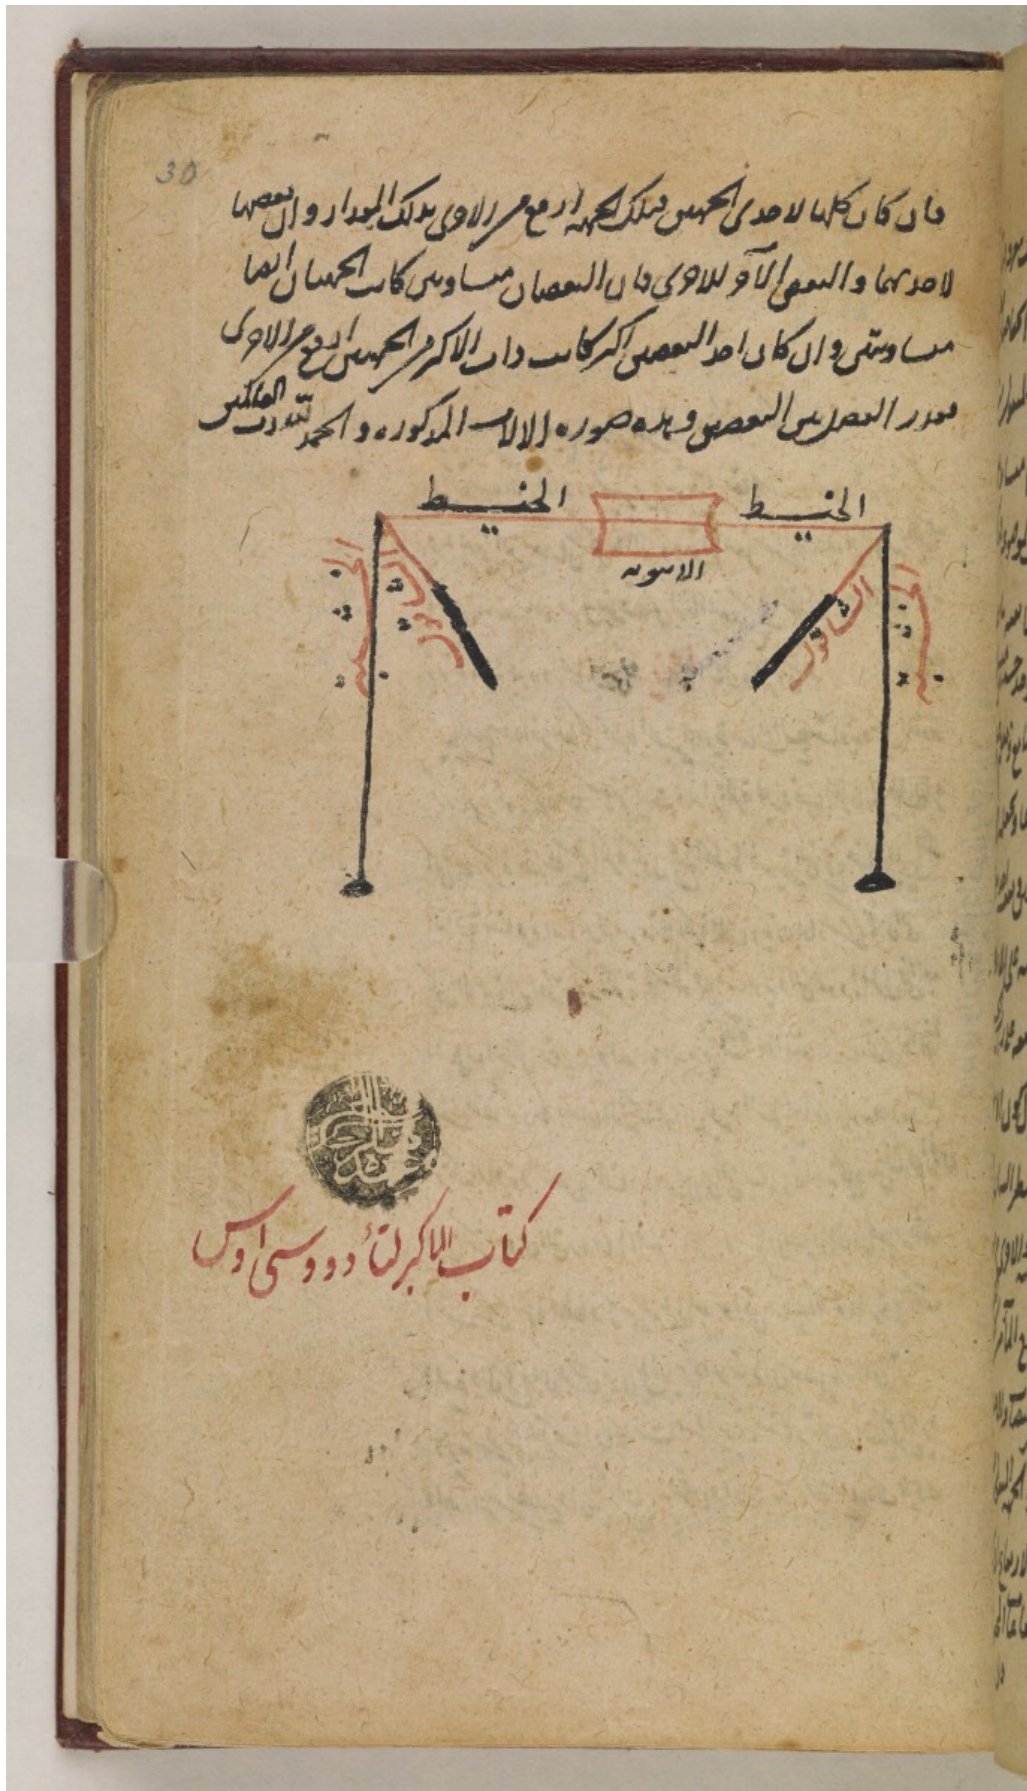 30
فان كان كلها لاحدى الجهتين فتلك الجهة ارفع من الاخرى بذلك المقدار وان بعضها
لاحدىهما والبعض الآخر للاخرى فان البعضان متساويين كانت الجهتان ايضا
متساويتين وان كان احد البعضين اكثر كانت ذات الاكثر من الجهتين ارفع من الاخرى
بقدر الفضل بين البعضين وهذه صورة الالات المذكورة والحمد لله رب العالمين
الخيط
الخيط
الانبوبه
الخشبه
الشاقول
الشاقول
الخشبه
كتاب الاكر لثاودوسيوس